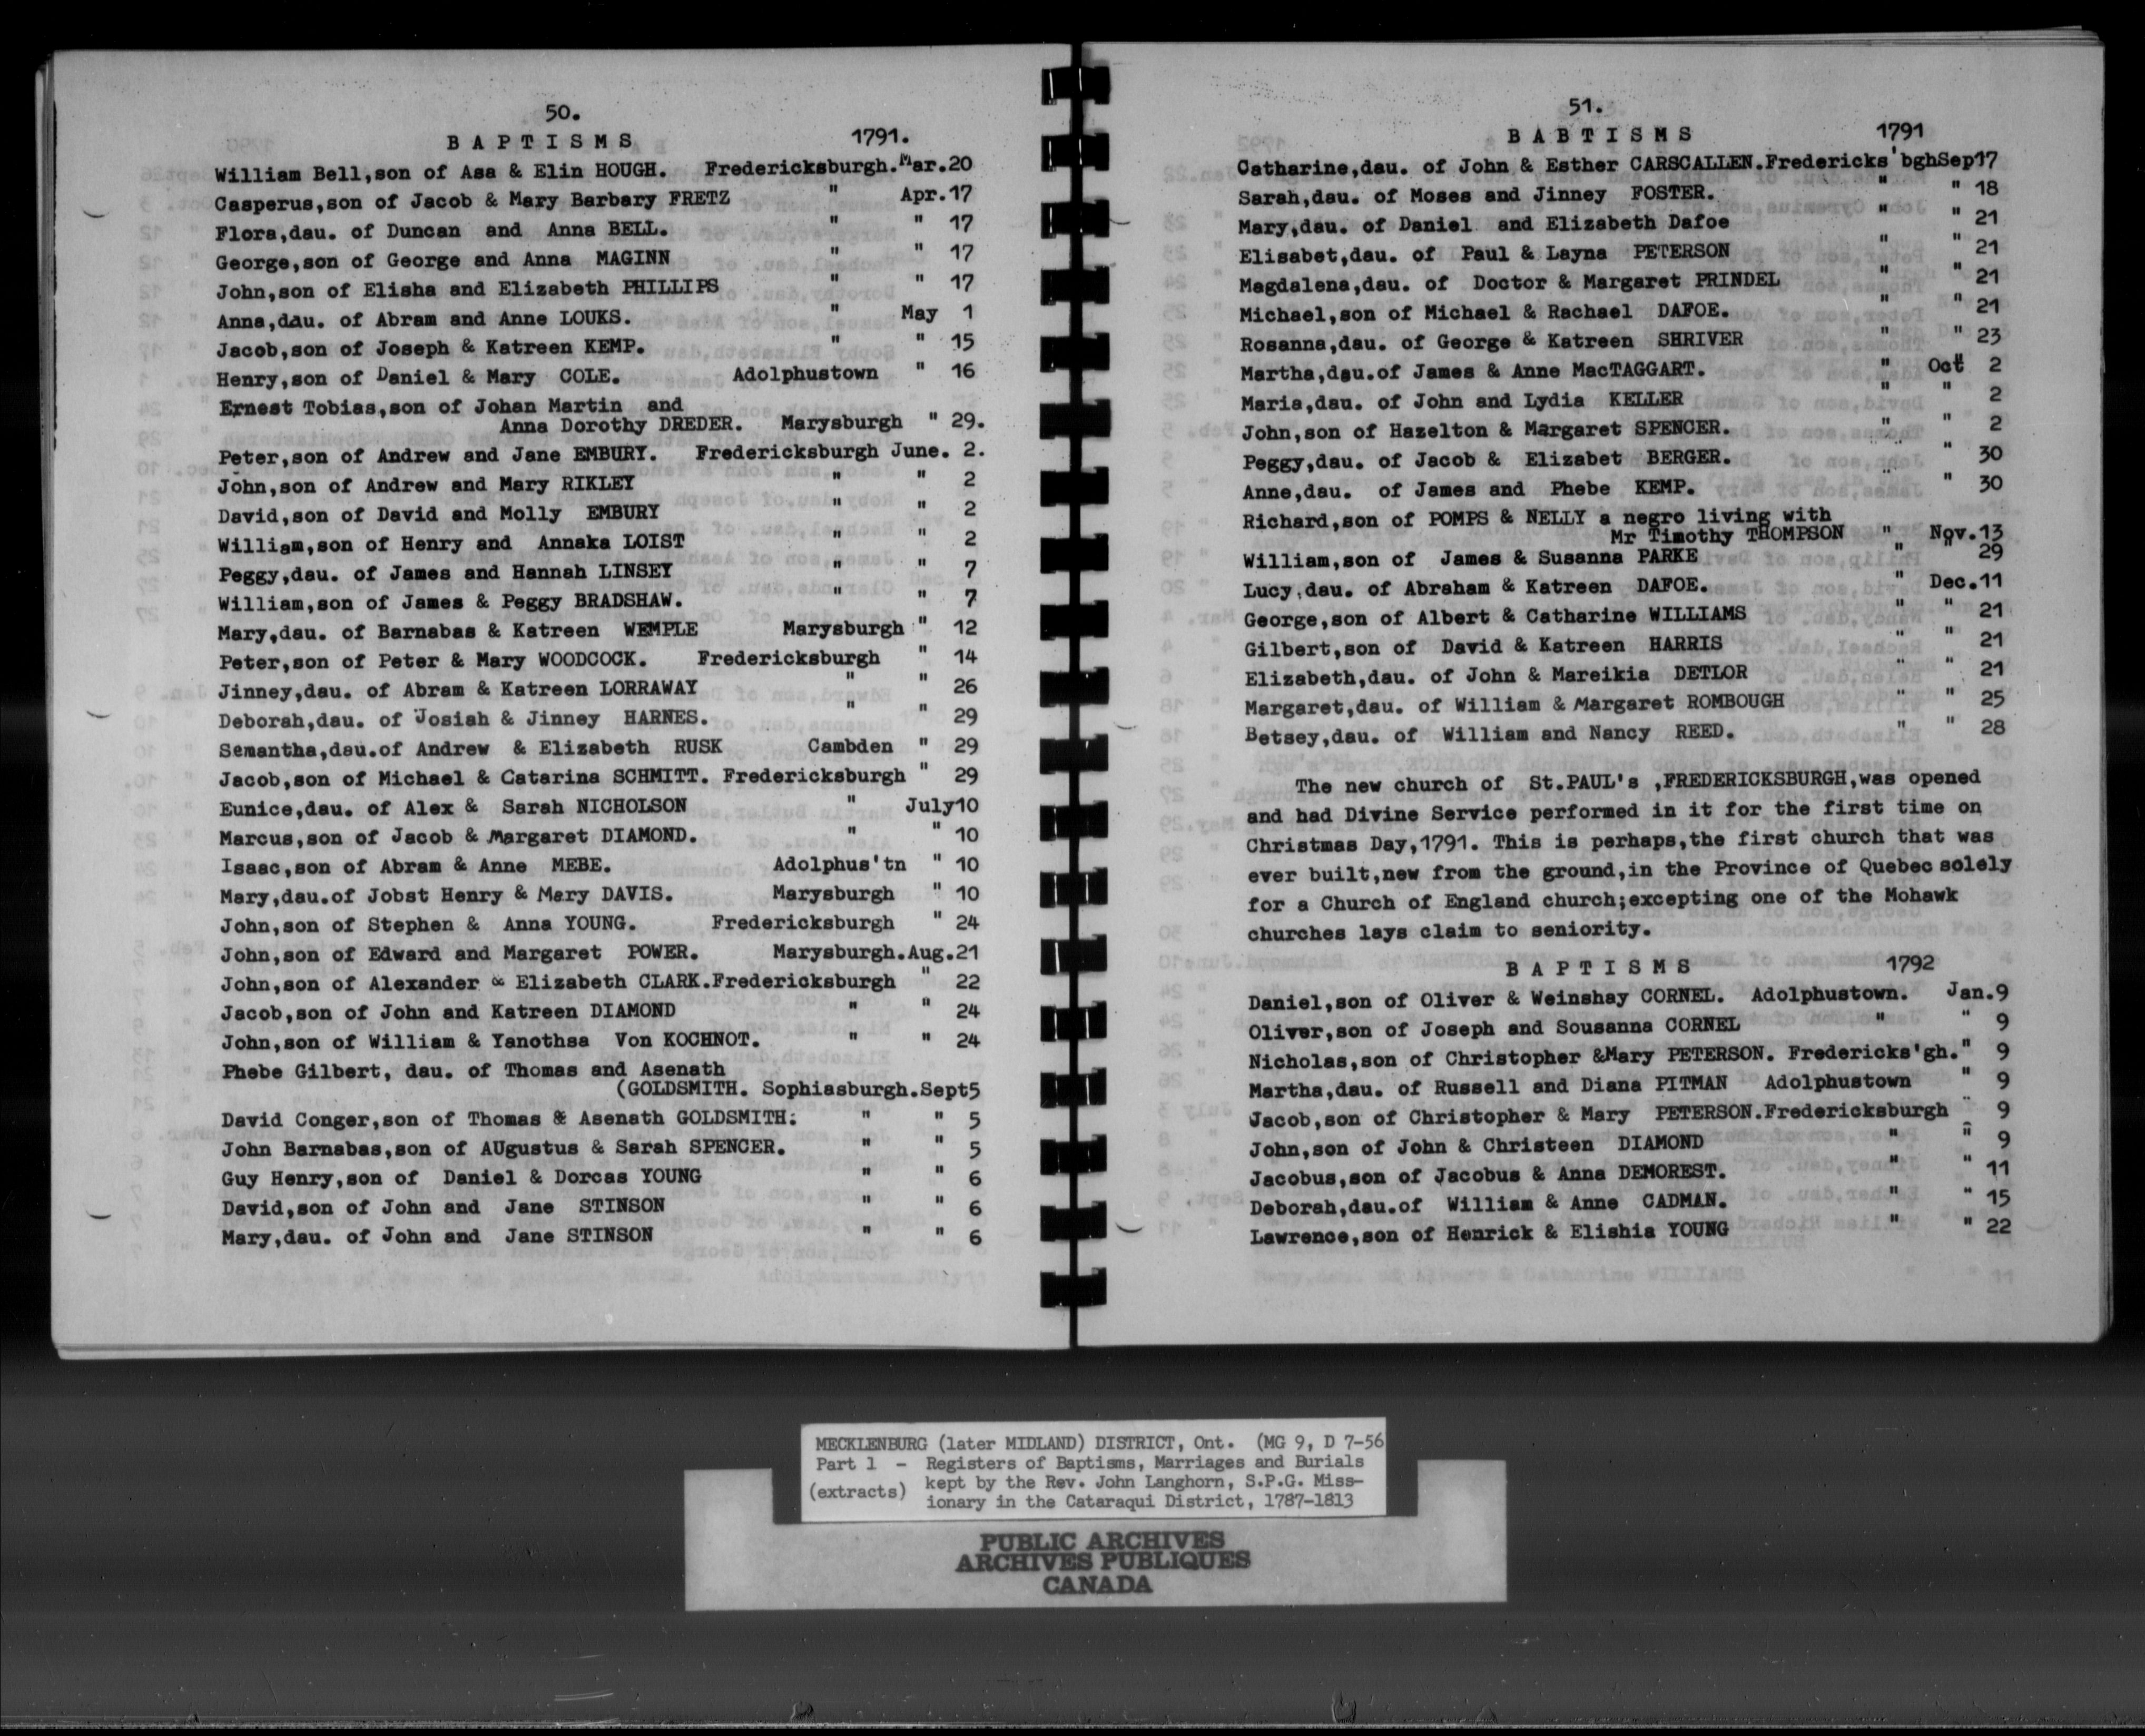 50.
BAPTISMS 1791.
William Bell,son of Asa & Elin HOUGH. Fredericksburgh.Mar.20
Casperus,son of Jacob & Mary Barbary FRETZ " Apr.17
Flora,dau. of Duncan and Anna BELL. " " 17
George,son of George and Anna MAGINN " " 17
John,son of Elisha and Elizabeth PHILLIPS " " 17
Anna,dau. of Abram and Anne LOUKS. " May 1
Jacob,son of Joseph & Katreen KEMP. " " 15
Henry,son of Daniel & Mary COLE. Adolphustown " 16
Ernest Tobias,son of Johan Martin and
Anna Dorothy DREDER. Marysburgh " 29.
Peter,son of Andrew and Jane EMBURY. Fredericksburgh June. 2.
John,son of Andrew and Mary RIKLEY " " 2
David,son of David and Molly EMBURY " " 2
William,son of Henry and Annaka LOIST " " 2
Peggy,dau. of James and Hannah LINSEY " " 7
William,son of James & Peggy BRADSHAW. " " 7
Mary,dau. of Barnabas & Katreen WEMPLE Marysburgh " 12
Peter,son of Peter & Mary WOODCOCK. Fredericksburgh " 14
Jinney,dau. of Abram & Katreen LORRAWAY " " 26
Deborah,dau. of Josiah & Jinney HARNES. " " 29
Semantha,dau.of Andrew & Elizabeth RUSK Cambden " 29
Jacob,son of Michael & Catarina SCHMITT. Fredericksburgh " 29
Eunice,dau. of Alex & Sarah NICHOLSON " July10
Marcus,son of Jacob & Margaret DIAMOND. " " 10
Isaac,son of Abram & Anne MEBE. Adolphus'tn " 10
Mary,dau.of Jobst Henry & Mary DAVIS. Marysburgh " 10
John,son of Stephen & Anna YOUNG. Fredericksburgh " 24
John,son of Edward and Margaret POWER. Marysburgh.Aug.21
John,son of Alexander & Elizabeth CLARK.Fredericksburgh " 22
Jacob,son of John and Katreen DIAMOND " " 24
John,son of William & Yanothsa Von KOCHNOT. " " 24
Phebe Gilbert, dau. of Thomas and Asenath
(GOLDSMITH. Sophiasburgh.Sept5
David Conger,son of Thomas & Asenath GOLDSMITH. " " 5
John Barnabas,son of AUgustus & Sarah SPENCER. " " 5
Guy Henry,son of Daniel & Dorcas YOUNG " " 6
David,son of John and Jane STINSON " " 6
Mary,dau. of John and Jane STINSON " " 6
51.
BABTISMS 1791
Catharine,dau. of John & Esther CARSCALLEN.Fredericks'bghSep17
Sarah,dau. of Moses and Jinney FOSTER. " " 18
Mary,dau. of Daniel and Elizabeth Dafoe " " 21
Elisabet,dau. of Paul & Layna PETERSON " " 21
Magdalena,dau. of Doctor & Margaret PRINDEL " " 21
Michael,son of Michael & Rachael DAFOE. " " 21
Rosanna,dau. of George & Katreen SHRIVER " " 23
Martha,dau.of James & Anne MacTAGGART. " Oct 2
Maria,dau. of John and Lydia KELLER " " 2
John,son of Hazelton & Margaret SPENCER. " " 2
Peggy,dau. of Jacob & Elizabet BERGER. " " 30
Anne,dau. of James and Phebe KEMP. " " 30
Richard,son of POMPS & NELLY a negro living with
Mr Timothy THOMPSON " Nov.13
William,son of James & Susanna PARKE " " 29
Lucy,dau. of Abraham & Katreen DAFOE. " Dec.11
George,son of Albert & Catharine WILLIAMS " " 21
Gilbert,son of David & Katreen HARRIS " " 21
Elizabeth,dau. of John & Mareikia DETLOR " " 21
Margaret,dau. of William & Margaret ROMBOUGH " " 25
Betsey,dau. of William and Nancy REED. " " 28
The new church of St.PAUL's ,FREDERICKSBURGH,was opened
and had Divine Service performed in it for the first time on
Christmas Day,1791. This is perhaps,the first church that was
ever built,new from the ground,in the Province of Quebec solely
for a Church of England church;excepting one of the Mohawk
churches lays claim to seniority.
BAPTISMS 1792
Daniel,son of Oliver & Weinshay CORNEL. Adolphustown. Jan.9
Oliver,son of Joseph and Sousanna CORNEL " " 9
Nicholas,son of Christopher &Mary PETERSON. Fredericks'gh." 9
Martha,dau. of Russell and Diana PITMAN Adolphustown " 9
Jacob,son of Christopher & Mary PETERSON.Fredericksburgh " 9
John,son of John & Christeen DIAMOND " " 9
Jacobus,son of Jacobus & Anna DEMOREST. " " 11
Deborah,dau.of William & Anne CADMAN. " " 15
Lawrence,son of Henrick & Elishia YOUNG " " 22
MECKLENBURG (later MIDLAND) DISTRICT, Ont. (MG 9, D 7-56
Part 1 - Registers of Baptisms, Marriages and Burials
(extracts) kept by the Rev. John Langhorn, S.P.G. Miss-
ionary in the Cataraqui District, 1787-1813
PUBLIC ARCHIVES
ARCHIVES PUBLIQUES
CANADA